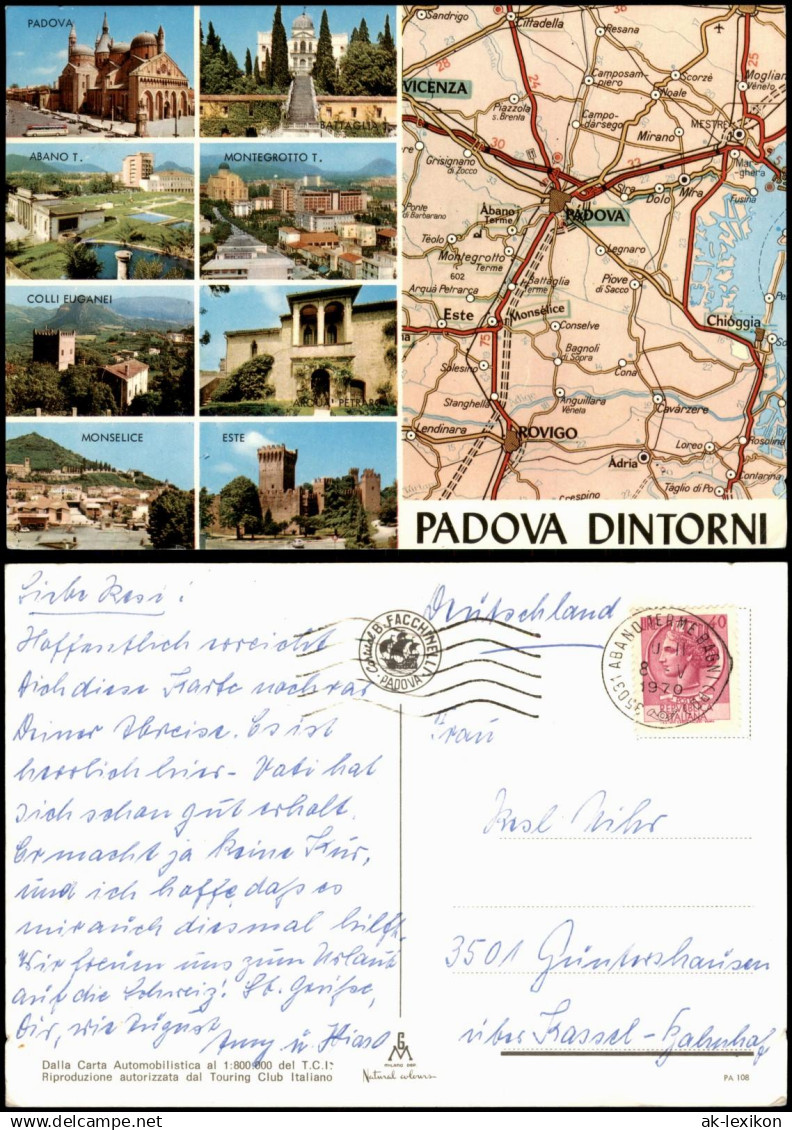 PADOVA
BATTAGLIA T.
ABANO T.
MONTEGROTTO T.
COLLI EUGANEI
ARQUA' PETRARCA
MONSELICE
ESTE
Sandrigo
Cittadella
Resana
25
36
24
VICENZA
Camposam-
piero
Scorzé
Moglian
Veneto
Noale
Piazzola
s. Brenta
Campo-
darsego
Mirano
MESTRE
30
33
Grisignano
di Zocco
Mar-
ghera
Stra
Dolo
Mira
Fusina
Ponte
di Barbarano
Àbano
Terme
PADOVA
Teolo
Legnaro
Montegrotto
Terme
602
Battàglia
Terme
Piove
di Sacco
Arquà Petrarca
Este
Monsélice
Chióggia
Conselve
75
Bagnoli
di Sopra
Solesino
Cona
Stanghella
Anguillara
Vèneta
Cavárzere
Lendinara
ROVIGO
Loreo
Rosolina
Àdria
Contarina
Crespino
Taglio di Po
PADOVA DINTORNI
Liebe Resi!
Hoffentlich erreicht
Dich diese Karte noch vor
Deiner Abreise. Es ist
herrlich hier - Vati hat
sich schon gut erholt.
Er macht ja keine Kur,
und ich hoffe, daß es
mir auch diesmal hilft.
Wir freuen uns zum Urlaub
auf die Schweiz! Hb. Grüße,
Dir, wie August
Anny u. Hias
Dalla Carta Automobilistica al 1:800.000 del T.C.I.
Riproduzione autorizzata dal Touring Club Italiano
B. FACCHINELLI
PADOVA
G
M
MILANO
Natural colours
Deutschland
40
35031 ABANO TERME BAGNI
8 V
1970
REPUBBLICA
ITALIANA
Frau
Resl Vihr
3501 Güntershausen
über Kassel-Bahnhof
PA 108
ak-lexikon.com